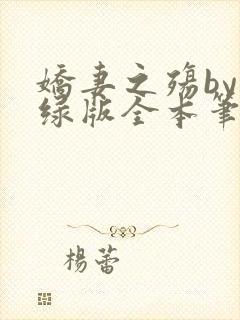 嬌妻之殤by
绿版全本笔
楊蕾